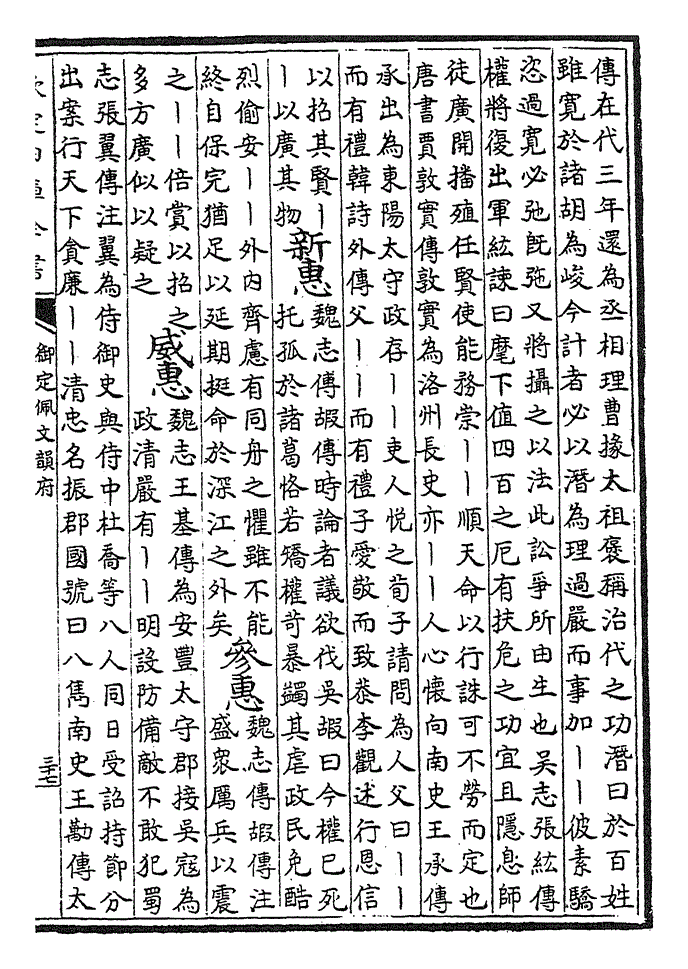 傳在代三年還為丞相理曹掾太祖褒稱治代之功潛曰於百姓
雖寬於諸胡為峻今計者必以潛為理過嚴而事加丨丨彼素驕
恣過寬必弛既弛又將攝之以法此訟爭所由生也吳志張紘傳
權將復出軍紘諫曰麾下值四百之厄有扶危之功宜且隱息師
徒廣開播殖任賢使能務崇丨丨順天命以行誅可不勞而定也
唐書賈敦實傳敦實為洛州長史亦丨丨人心懷向南史王承傳
承出為東陽太守政存丨丨吏人悅之荀子請問為人父曰丨丨
而有禮韓詩外傳父丨丨而有禮子愛敬而致恭李觀述行恩信
以招其賢丨
丨以廣其物
新惠
魏志傳嘏傳時論者議欲伐吳嘏曰今權已死
托孤於諸葛恪若矯權苛暴蠲其虐政民免酷
烈偷安丨丨外內齊慮有同舟之懼雖不能
終自保完猶足以延期挺命於深江之外矣
參惠
魏志傳嘏傳注
盛眾厲兵以震
之丨丨倍賞以招之
多方廣似以疑之
威惠
魏志王基傳為安豐太守郡接吳寇為
政清嚴有丨丨明設防備敵不敢犯蜀
志張翼傳注翼為侍御史與侍中杜喬等八人同日受詔持節分
出案行天下貪廉丨丨清忠名振郡國號曰八雋南史王勱傳太
欽定四庫全書
御定佩文韻府
三十七